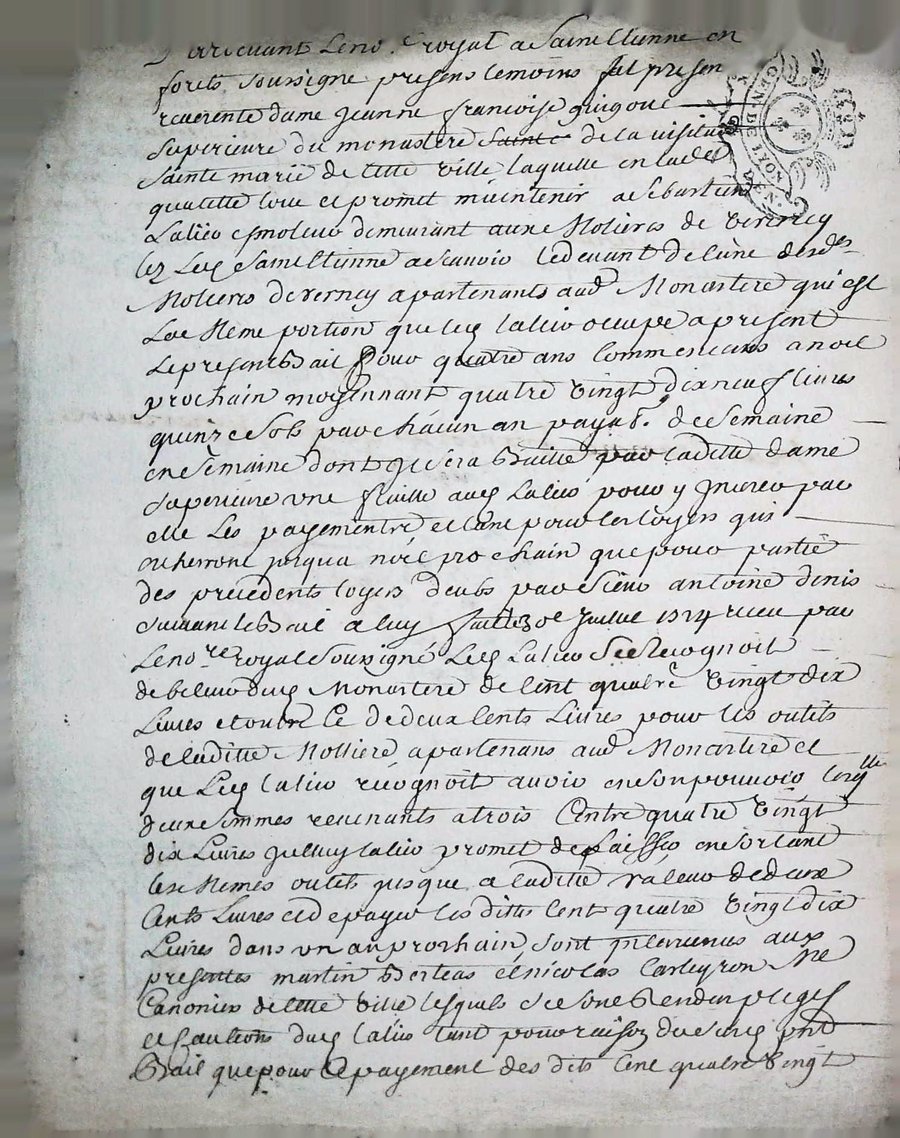 Pardevant le no.re royal a Saint Etienne en
forets soussigné presens temoins fut presen
reverente dame jeanne francoise guigoue
superieure du monastere sainte de la visita
GEN. DE LYON
sainte marie de cette ville laquelle en ladte
quallitte loue et promet maintenir a Sebastien
Lalico esmoleur demeurant aux Molieres de verney
lez led Saint Etienne ascavoir le devant de lune desdes
Molieres de verney apartenants aud Monastere qui est
La Meme portion que led Lalico ocupe a present
Le present Bail pour quatre ans Commencans a noel
prochain moyennant quatre vingt dix neuf livres
quinze sols par chacun an payab. de Semaine
en Semaine dont il sera Baillé par ladite dame
superieure une feuille aud Lalico pour y Inserer par
elle Les payements tant pour les loyers qui
echerront jusqua noel prochain que pour partie
des precedents loyers deubs par Sieur antoine denis
suivant le Bail a luy fait le 3 juillet 1714 receu par
Le no.re royal soussigné Led Lalico Se Recognoit
debiteur dud Monastere de Cent quatre vingt dix
Livres et outre Ce de deux Cents Livres pour les outils
de ladite Molliere apartenans aud Monastere et
que Led Lalico recognoit avoir en son pouvoir lesqlles
deux sommes revenants a trois Cents quatre vingt
dix Livres Icelluy Lalico promet de laisser en sortant
les Memes outils jusque a ladite valeur de deux
Cents Livres et de payer les dittes Cent quatre vingt dix
Livres dans un an prochain, sont intervenus aux
presentes martin Berteas et nicolas Carteyron Me
Canoniers de cette ville lesquels se sont Rendus pleges
et Cautions dud Lalico tant pour raison du susd pnt
Bail que pour le payement des dits Cent quatre vingt